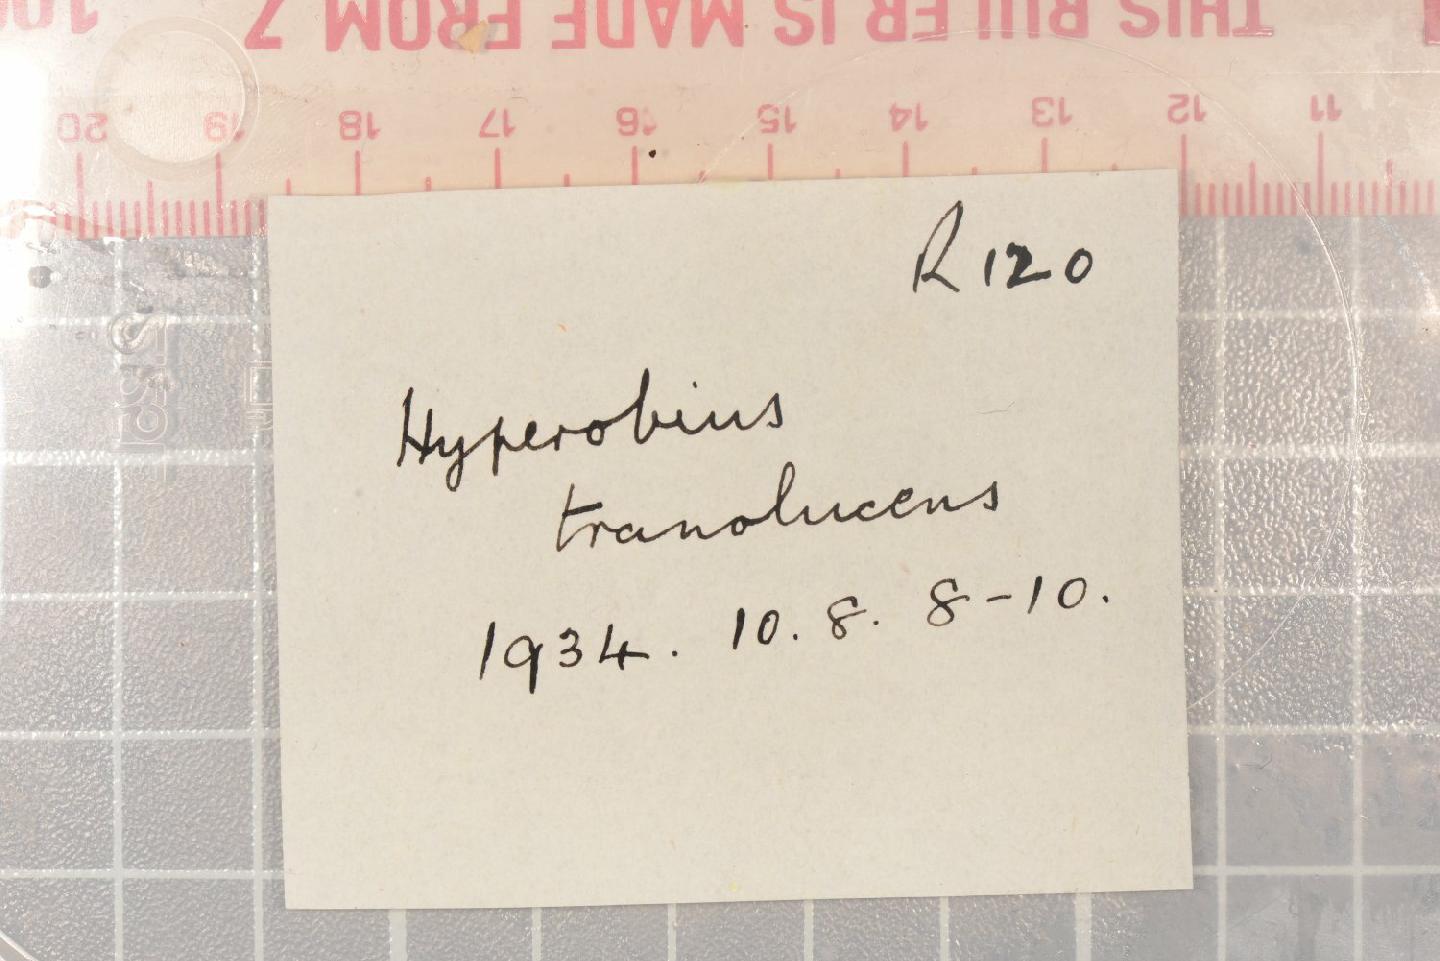 THIS RULER IS MADE FROM 7
20 19 18 17 16 15 14 13 12 11
R120
Hyperobius
translucens
1934. 10. 8. 8-10.